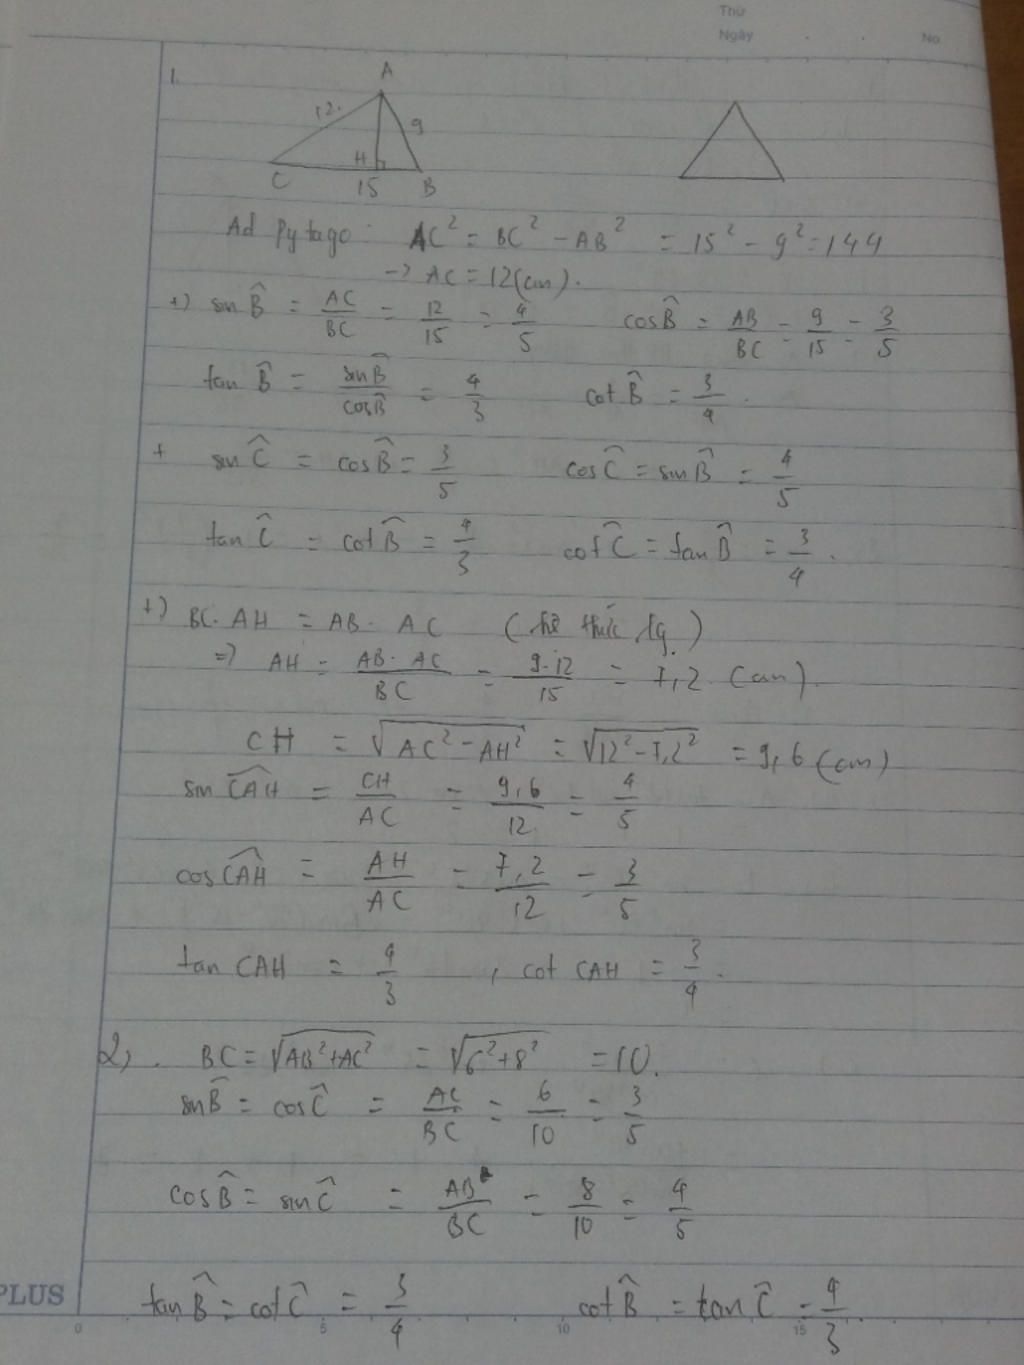 Thứ
Ngày . . No
1.
A
12. 9
H
C 15 B
Ad Pytago: AC² = BC² - AB² = 15² - 9² = 144
-> AC = 12 (cm).
+) sin B̂ = AC/BC = 12/15 = 4/5 cos B̂ = AB/BC = 9/15 = 3/5
tan B̂ = sin B̂/cos B̂ = 4/3 cot B̂ = 3/4.
+ sin Ĉ = cos B̂ = 3/5 cos Ĉ = sin B̂ = 4/5
tan Ĉ = cot B̂ = 4/3 cot Ĉ = tan B̂ = 3/4.
+) BC. AH = AB. AC (hệ thức lg.)
=> AH = AB. AC/BC = 9.12/15 = 7,2 (cm).
CH = √(AC² - AH²) = √(12² - 7,2²) = 9,6 (cm)
sin CAĤ = CH/AC = 9,6/12 = 4/5
cos CAĤ = AH/AC = 7,2/12 = 3/5
tan CAH = 4/3 , cot CAH = 3/4.
2, . BC = √(AB² + AC²) = √(6² + 8²) = 10.
sin B̂ = cos Ĉ = AC/BC = 6/10 = 3/5
cos B̂ = sin Ĉ = AB/BC = 8/10 = 4/5
tan B̂ = cot Ĉ = 3/4 cot B̂ = tan Ĉ = 4/3
PLUS
0 5 10 15